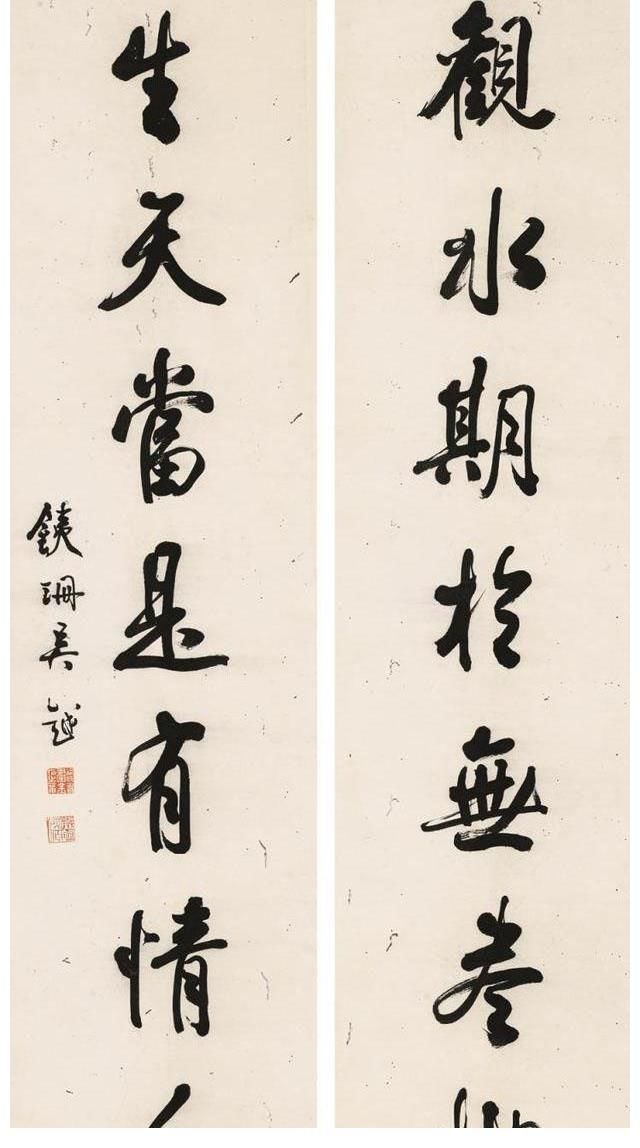 觀水期於無盡
生天當是有情
銕珊吳